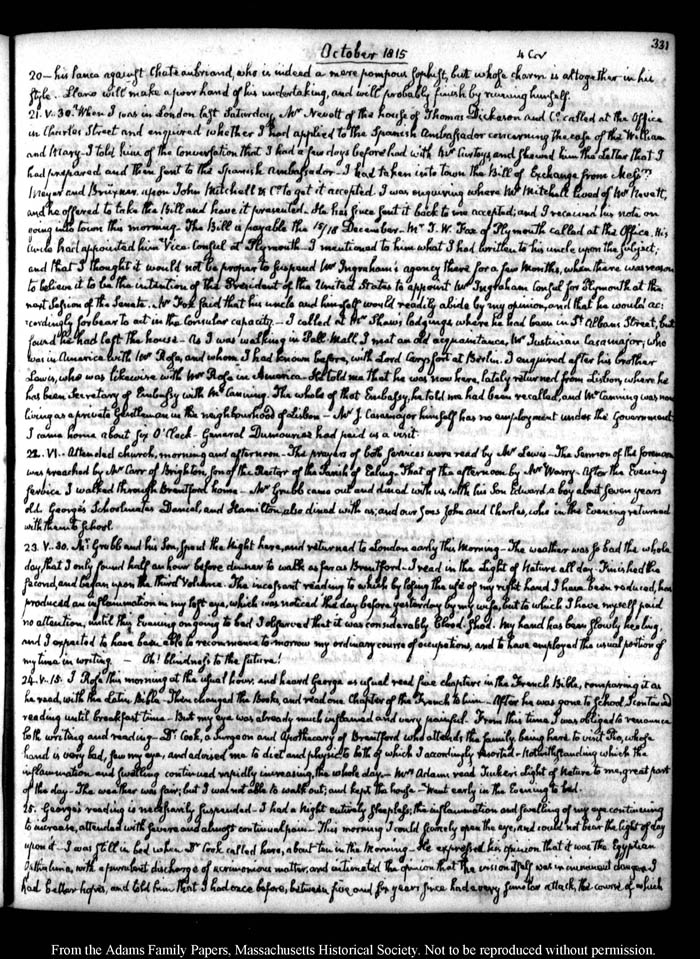 331
October 1815
20— his lance against Chateaubriand, who is indeed a mere pompous sophist, but whose charm is altogether in his
style. Llano will make a poor hand of his undertaking, and will probably finish by ruining himself.
21. V. 30. When I was in London last Saturday, Mr Nevett of the house of Thomas Dickason and Co. called at the Office
in Charles Street and enquired whether I had applied to the Spanish Ambassador concerning the case of the William
and Mary. I told him of the Conversation that I had a few days before had with Mr Curtoys and shewed him the Letter that I
had prepared and then sent to the Spanish Ambassador. I had taken into town the Bill of Exchange from
Meyer and Bruxner upon John Mitchell & Co. to get it accepted. I was enquiring where Mr Mitchell lived of Mr Nevett,
and he offered to take the Bill and have it presented. He has since sent it back to me accepted; and I received his note on
going into town this morning. The Bill is payable the 15/18 December. Mr T. W. Fox of Plymouth called at the Office. His
Uncle had appointed him Vice-Consul at Plymouth. I mentioned to him what I had written to his uncle upon the subject;
and that I thought it would not be proper to suspend Mr Ingraham's agency there for a few Months, when there was reason
to believe it to be the intention of the President of the United States to appoint Mr Ingraham Consul for Plymouth at the
next Session of the Senate. Mr Fox said that his uncle and himself would readily abide by my opinion, and that he would ac:
cordingly forbear to act in the Consular capacity. — I called at Mr Shaw's lodgings where he had been in St Albans Street, but
found he had left the house. As I was walking in Pall-Mall, I met an old acquaintance, Mr Justinian Casamajor, who
was in America with Mr Rose, and whom I had known before, with Lord Carysfort at Berlin. I enquired after his brother
Lewis, who was likewise with Mr Rose in America. He told me that he was now here, lately returned from Lisbon, where he
has been Secretary of Embassy with Mr Canning. The whole of that Embassy, he told me had been recalled, and Mr Canning was now
living as a private Gentleman in the neighbourhood of Lisbon — Mr J. Casamajor himself has no employment under the Government.
I came home about six O'Clock. General Dumouriez had paid us a visit.
22. VI. Attended church, morning and afternoon. The prayers of both services were read by Mr Lewis. The Sermon of the forenoon
was preached by Mr Carr of Brighton, son of the Rector of the Parish of Ealing. That of the afternoon by Mr Warry. After the Evening
service I walked through Brentford home. Mr Grubb came out and dined with us with his Son Edward a boy about seven years
old. George's Schoolmates Daniel, and Hamilton, also dined with us; and our Sons John and Charles, who in the Evening returned
with them to School.
23. V. 30. Mr Grubb and his Son, spent the Night here, and returned to London early this Morning. The weather was so bad the whole
day, that I only found half an hour before dinner to walk as far as Brentford. I read in the Light of Nature all day. Finished the
second, and began upon the third Volume. The incessant reading to which by losing the use of my right hand I have been reduced, has
produced an inflammation in my left eye, which was noticed the day before yesterday by my wife, but to which I have myself paid
no attention, until this Evening on going to bed I observed that it was considerably blood-shod. My hand has been slowly healing,
and I expected to have been able to recommence to-morrow my ordinary course of occupations, and to have employed the usual portion of
my time in writing. — Oh! blindness to the future!
24. V. 15. I rose this morning at the usual hour, and heard George as usual read five chapters in the French Bible, comparing it as
he read, with the Latin Bible. Then changed the Books, and read one Chapter of the French to him. After he was gone to School I continued
reading until breakfast time. But my eye was already much inflamed and very painful. From this time I was obliged to renounce
both writing and reading. Dr Cook, a Surgeon and Apothecary of Brentford who attends the family, being here to visit Tho, whose
hand is very bad, saw my eye, and advised me to diet and physic to both of which I accordingly resorted. Notwithstanding which the
inflammation and swelling continued rapidly increasing, the whole day. Mrs Adams read Tucker's Light of Nature to me, great part
of the day. The weather was fair; but I was not able to walk out; and kept the house. Went early in the Evening to bed.
25. George's reading is necessarily suspended. I had a Night entirely sleepless; the inflammation and swelling of my eye continuing
to increase, attended with severe and almost continual pain. This morning I could scarcely open the eye, and could not bear the light of day
upon it. I was still in bed when Dr Cook called here, about ten in the Morning. He expressed his opinion that it was the Egyptian
Opthalmia, with a purulent discharge of acrimonious matter, and intimated the opinion that the vision itself was in imminent danger. I
had better hopes, and told him that I had once before, between five and six years since had a very similar attack, the course of which
From the Adams Family Papers, Massachusetts Historical Society. Not to be reproduced without permission.